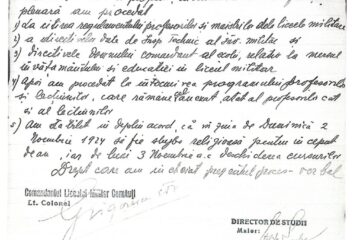 plenară am procedat
1) la citirea regulamentului profesorilor și maiștrilor dela liceele militare
2) a directivelor date de Insp. Technic al Inv. militar și
3) directivele Domnului comandant al școlei, relativ la mersul
învățământului și educației în liceul militar.
4) Apoi am procedat la întocmirea programului profesorilor
și lecțiunilor, care rămâne atât al profesorilor cât
și al lecțiunilor
5) Am stabilit în deplin acord, că în ziua de Duminică 2
Noembrie 1924 să fie slujba religioasă pentru început
de an, iar de Luni 3 Noembrie a.c. deschiderea cursurilor.
Drept care am încheiat prezentul proces-verbal
Comandantul Liceului Militar Cernăuți
Lt. Colonel
DIRECTOR DE STUDII
Maior: